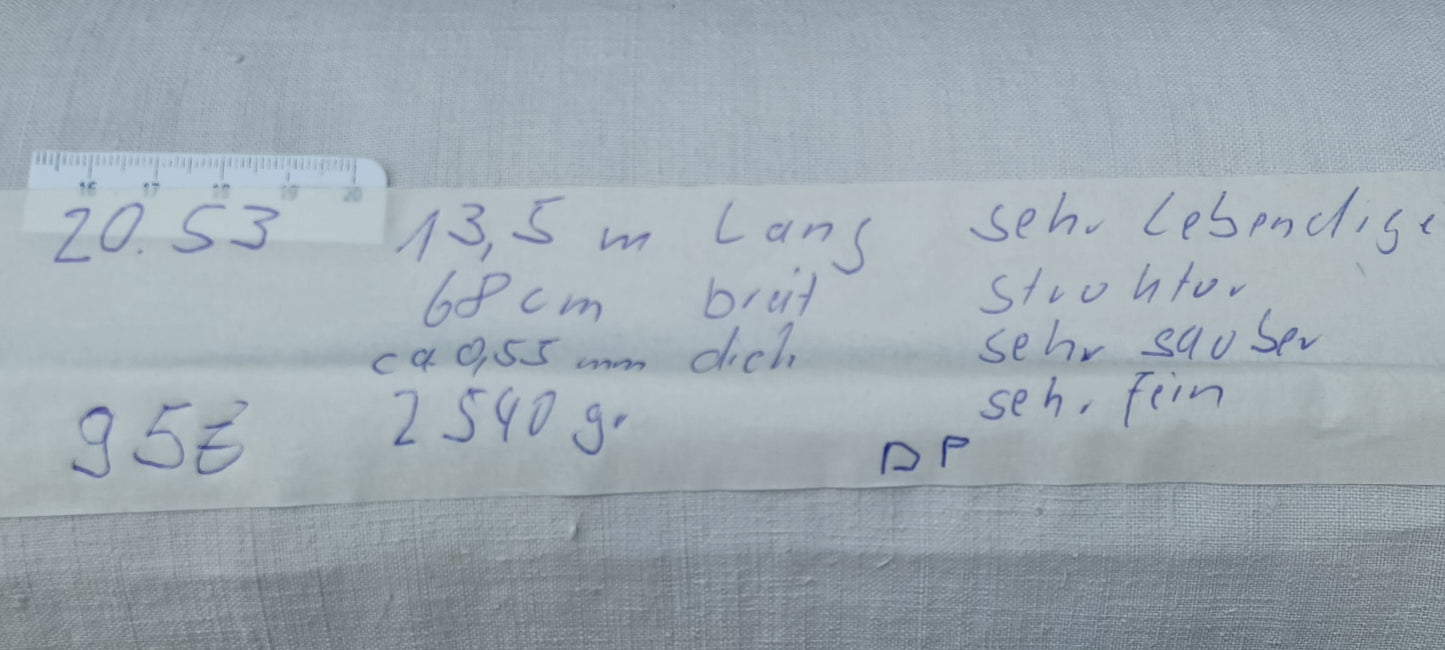 16 17 18 19 20
20.53 13,5 m Lang sehr Lebendige
68 cm breit Struktur
ca 0,55 mm dick sehr sauber
95€ 2540 gr sehr fein
DP